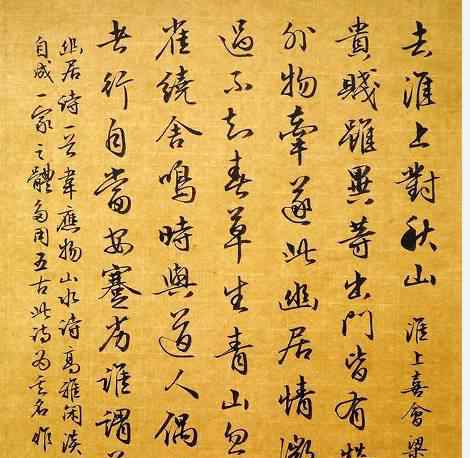 去淮上對秋山 淮上喜會梁
貴賤雖異等出門皆有
外物牽遂此幽居情微
過不知春草生青山忽
雀繞舍鳴時與道人偶
者行自當安蹇劣誰謂
幽居詩一首韋應物山水詩高雅閑淡
自成一家之體多用五古此詩為其名作